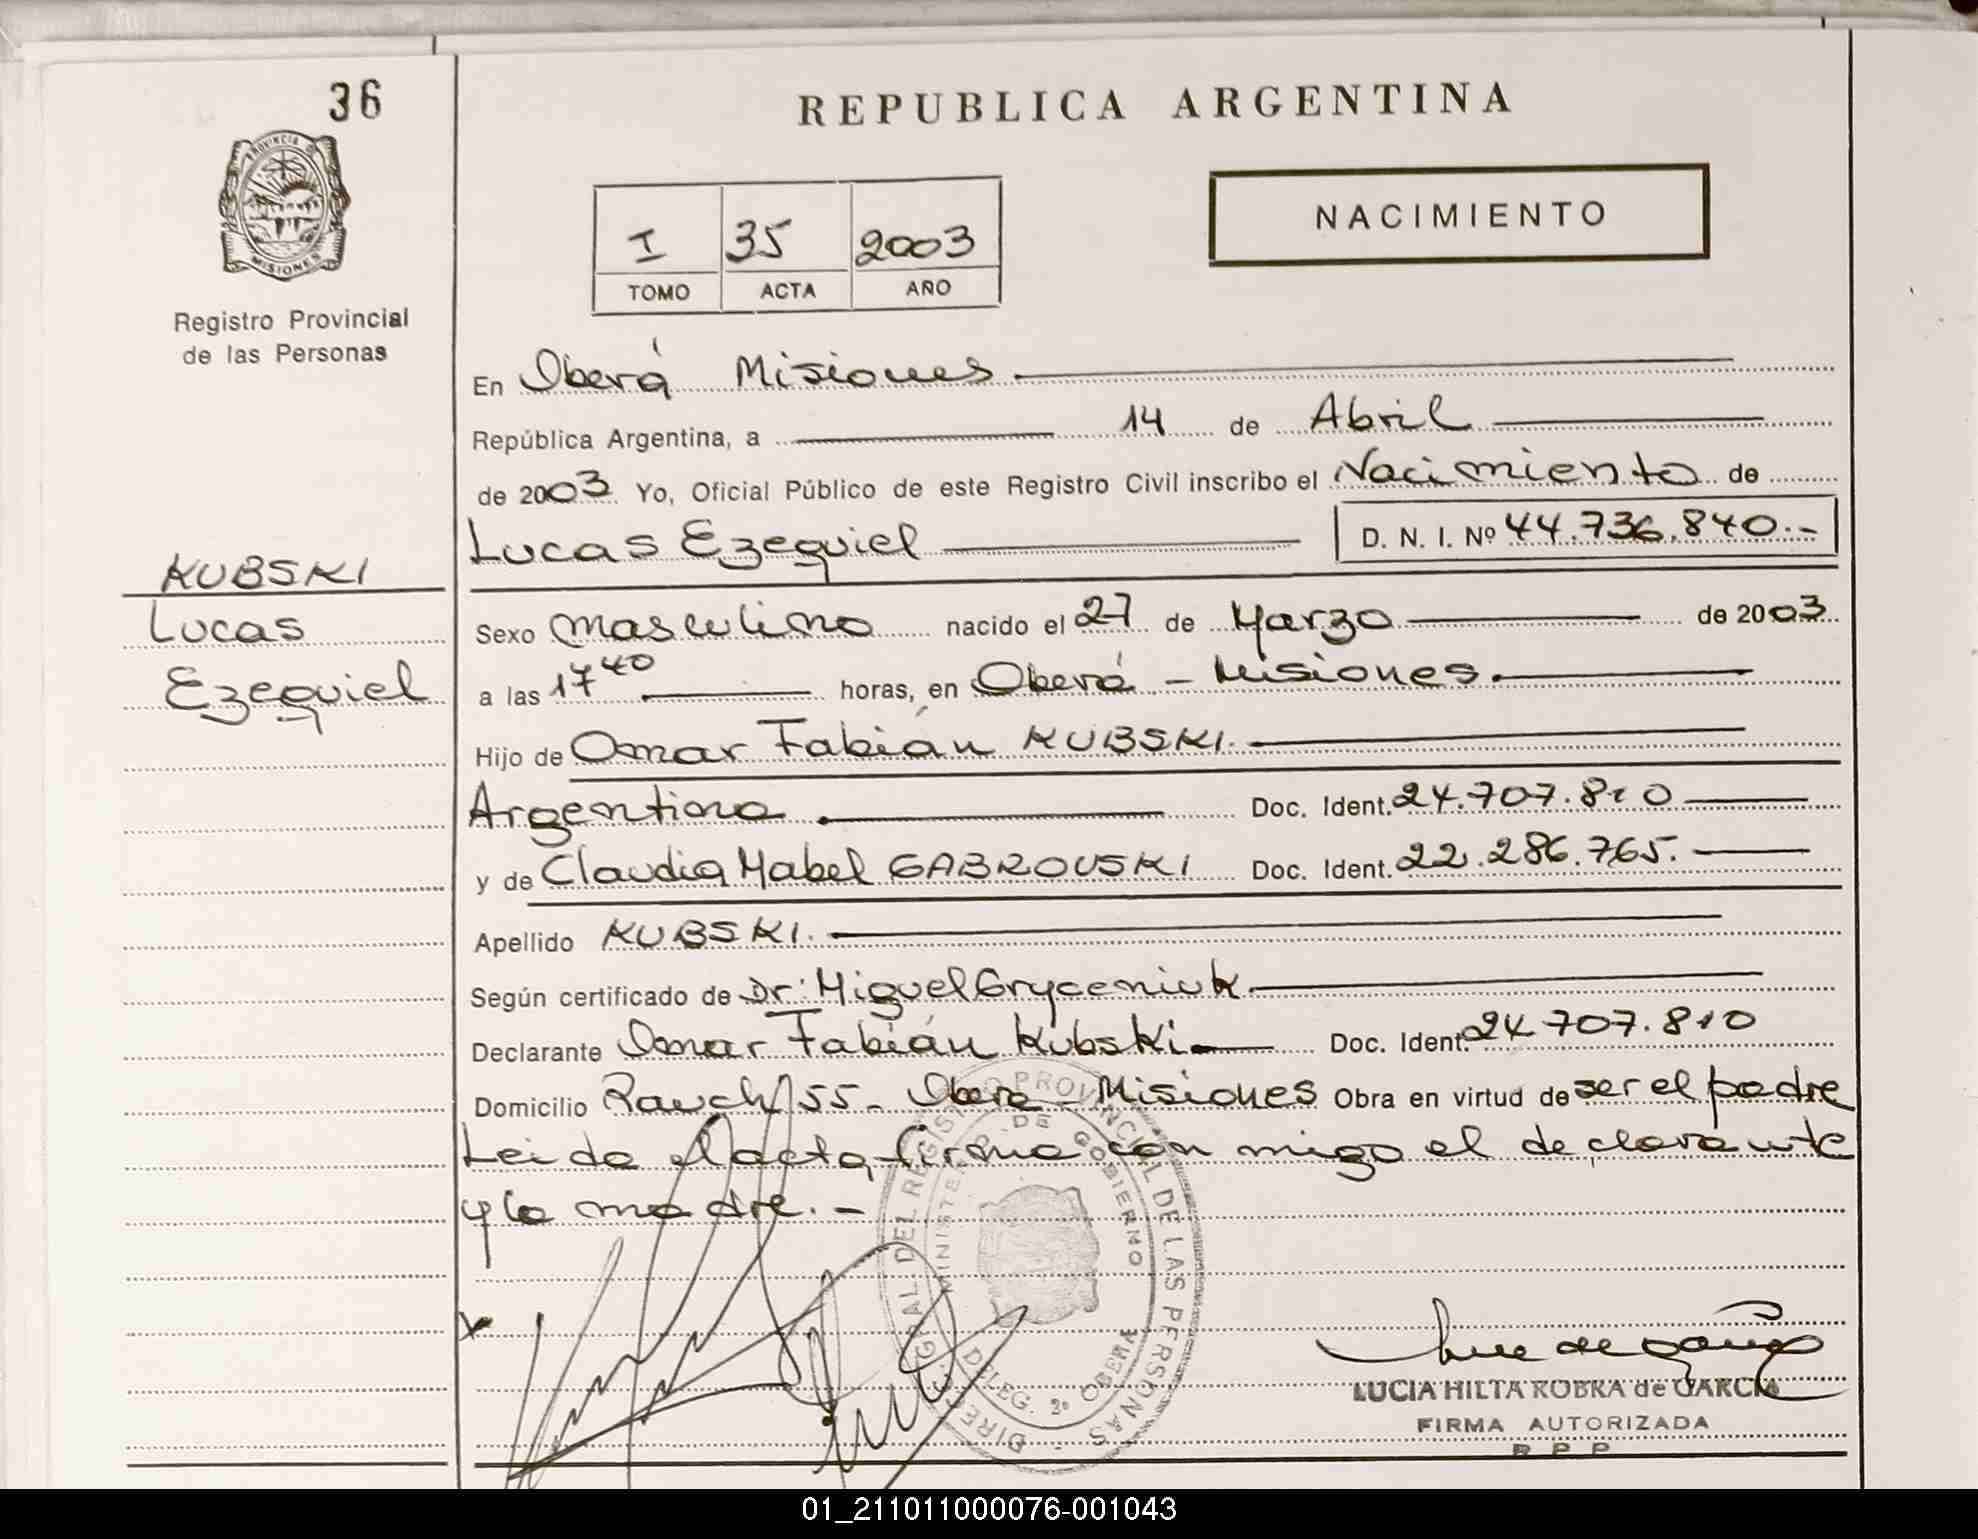 36
REPUBLICA ARGENTINA
PROVINCIA DE
MISIONES
NACIMIENTO
I 35 2003
TOMO ACTA AÑO
Registro Provincial
de las Personas
En Oberá Misiones
República Argentina, a 14 de Abril
de 2003 Yo, Oficial Público de este Registro Civil inscribo el Nacimiento de
Lucas Ezequiel D. N. I. Nº 44.736.840.-
KUBSKI
Lucas
Ezequiel
Sexo masculino nacido el 27 de Marzo de 2003
a las 17 40 horas, en Oberá - Misiones.
Hijo de Omar Fabián KUBSKI.
Argentina Doc. Ident. 24.707.810
y de Claudia Mabel GABROUSKI Doc. Ident. 22.286.765.
Apellido KUBSKI.
Según certificado de Dr: Miguel Gryceniuk
Declarante Omar Fabián Kubski Doc. Ident. 24 707.810
Domicilio Rauch 155 - Obera - Misiones Obra en virtud de ser el padre
Leida el acta, firma con migo el declarante
y la madre. -
DIREC. GRAL DEL REGISTRO PROVINCIAL DE LAS PERSONAS
MINISTERIO DE GOBIERNO
DELEG. 2º OBERA
LUCIA HILTA ROBRA de GARCIA
FIRMA AUTORIZADA
R P P
01_211011000076-001043